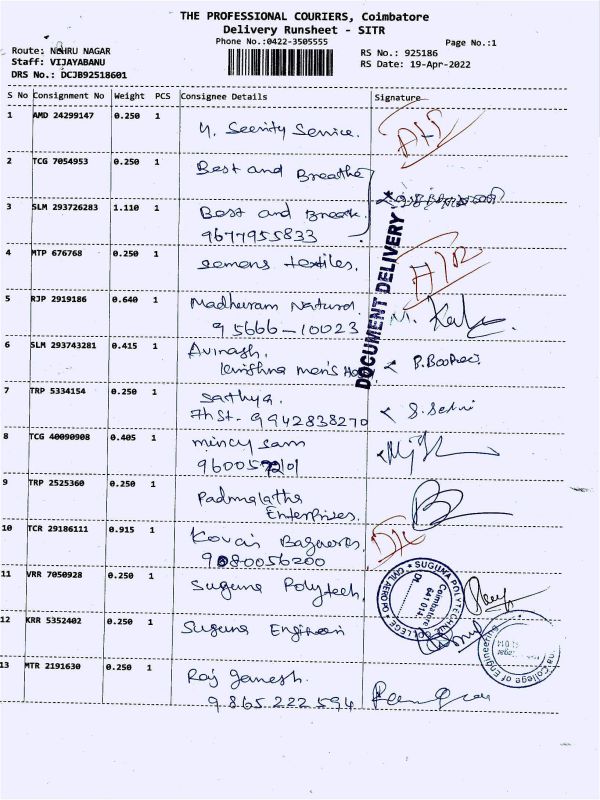 THE PROFESSIONAL COURIERS, Coimbatore
Delivery Runsheet - SITR
Phone No.:0422-3505555
Page No.:1
Route: NEHRU NAGAR
Staff: VIJAYABANU
DRS No.: DCJB92518601
RS No.: 925186
RS Date: 19-Apr-2022
S No Consignment No Weight PCS Consignee Details Signature
1 AMD 24299147 0.250 1
Service.
2 TCG 7054953 0.250 1 Best and Breathe
3 SLM 293726283 1.110 1 Best and
9677955833
4 MTP 676768 0.250 1 textiles.
5 RJP 2919186 0.640 1 Madhuram
95666-10023
6 SLM 293743281 0.415 1 Avinash.
Krishna men's
7 TRP 5334154 0.250 1 Sathya.
7th St- 9942838270
8 TCG 40090908 0.405 1 mincy sam
9 TRP 2525360 0.250 1 Padmalatha
Enterprises.
10 TCR 29186111 0.915 1 Kovai
9080056200
11 VRR 7050928 0.250 1 Suguna Polytech,
12 KRR 5352402 0.250 1 Suguna
13 MTR 2191630 0.250 1 Raj Ganesh.
9865222594
DOCUMENT DELIVERY
SUGUNA POLYTECHNIC COLLEGE
CIVIL AERO PO
Coimbatore
641 014.
College of Engineering